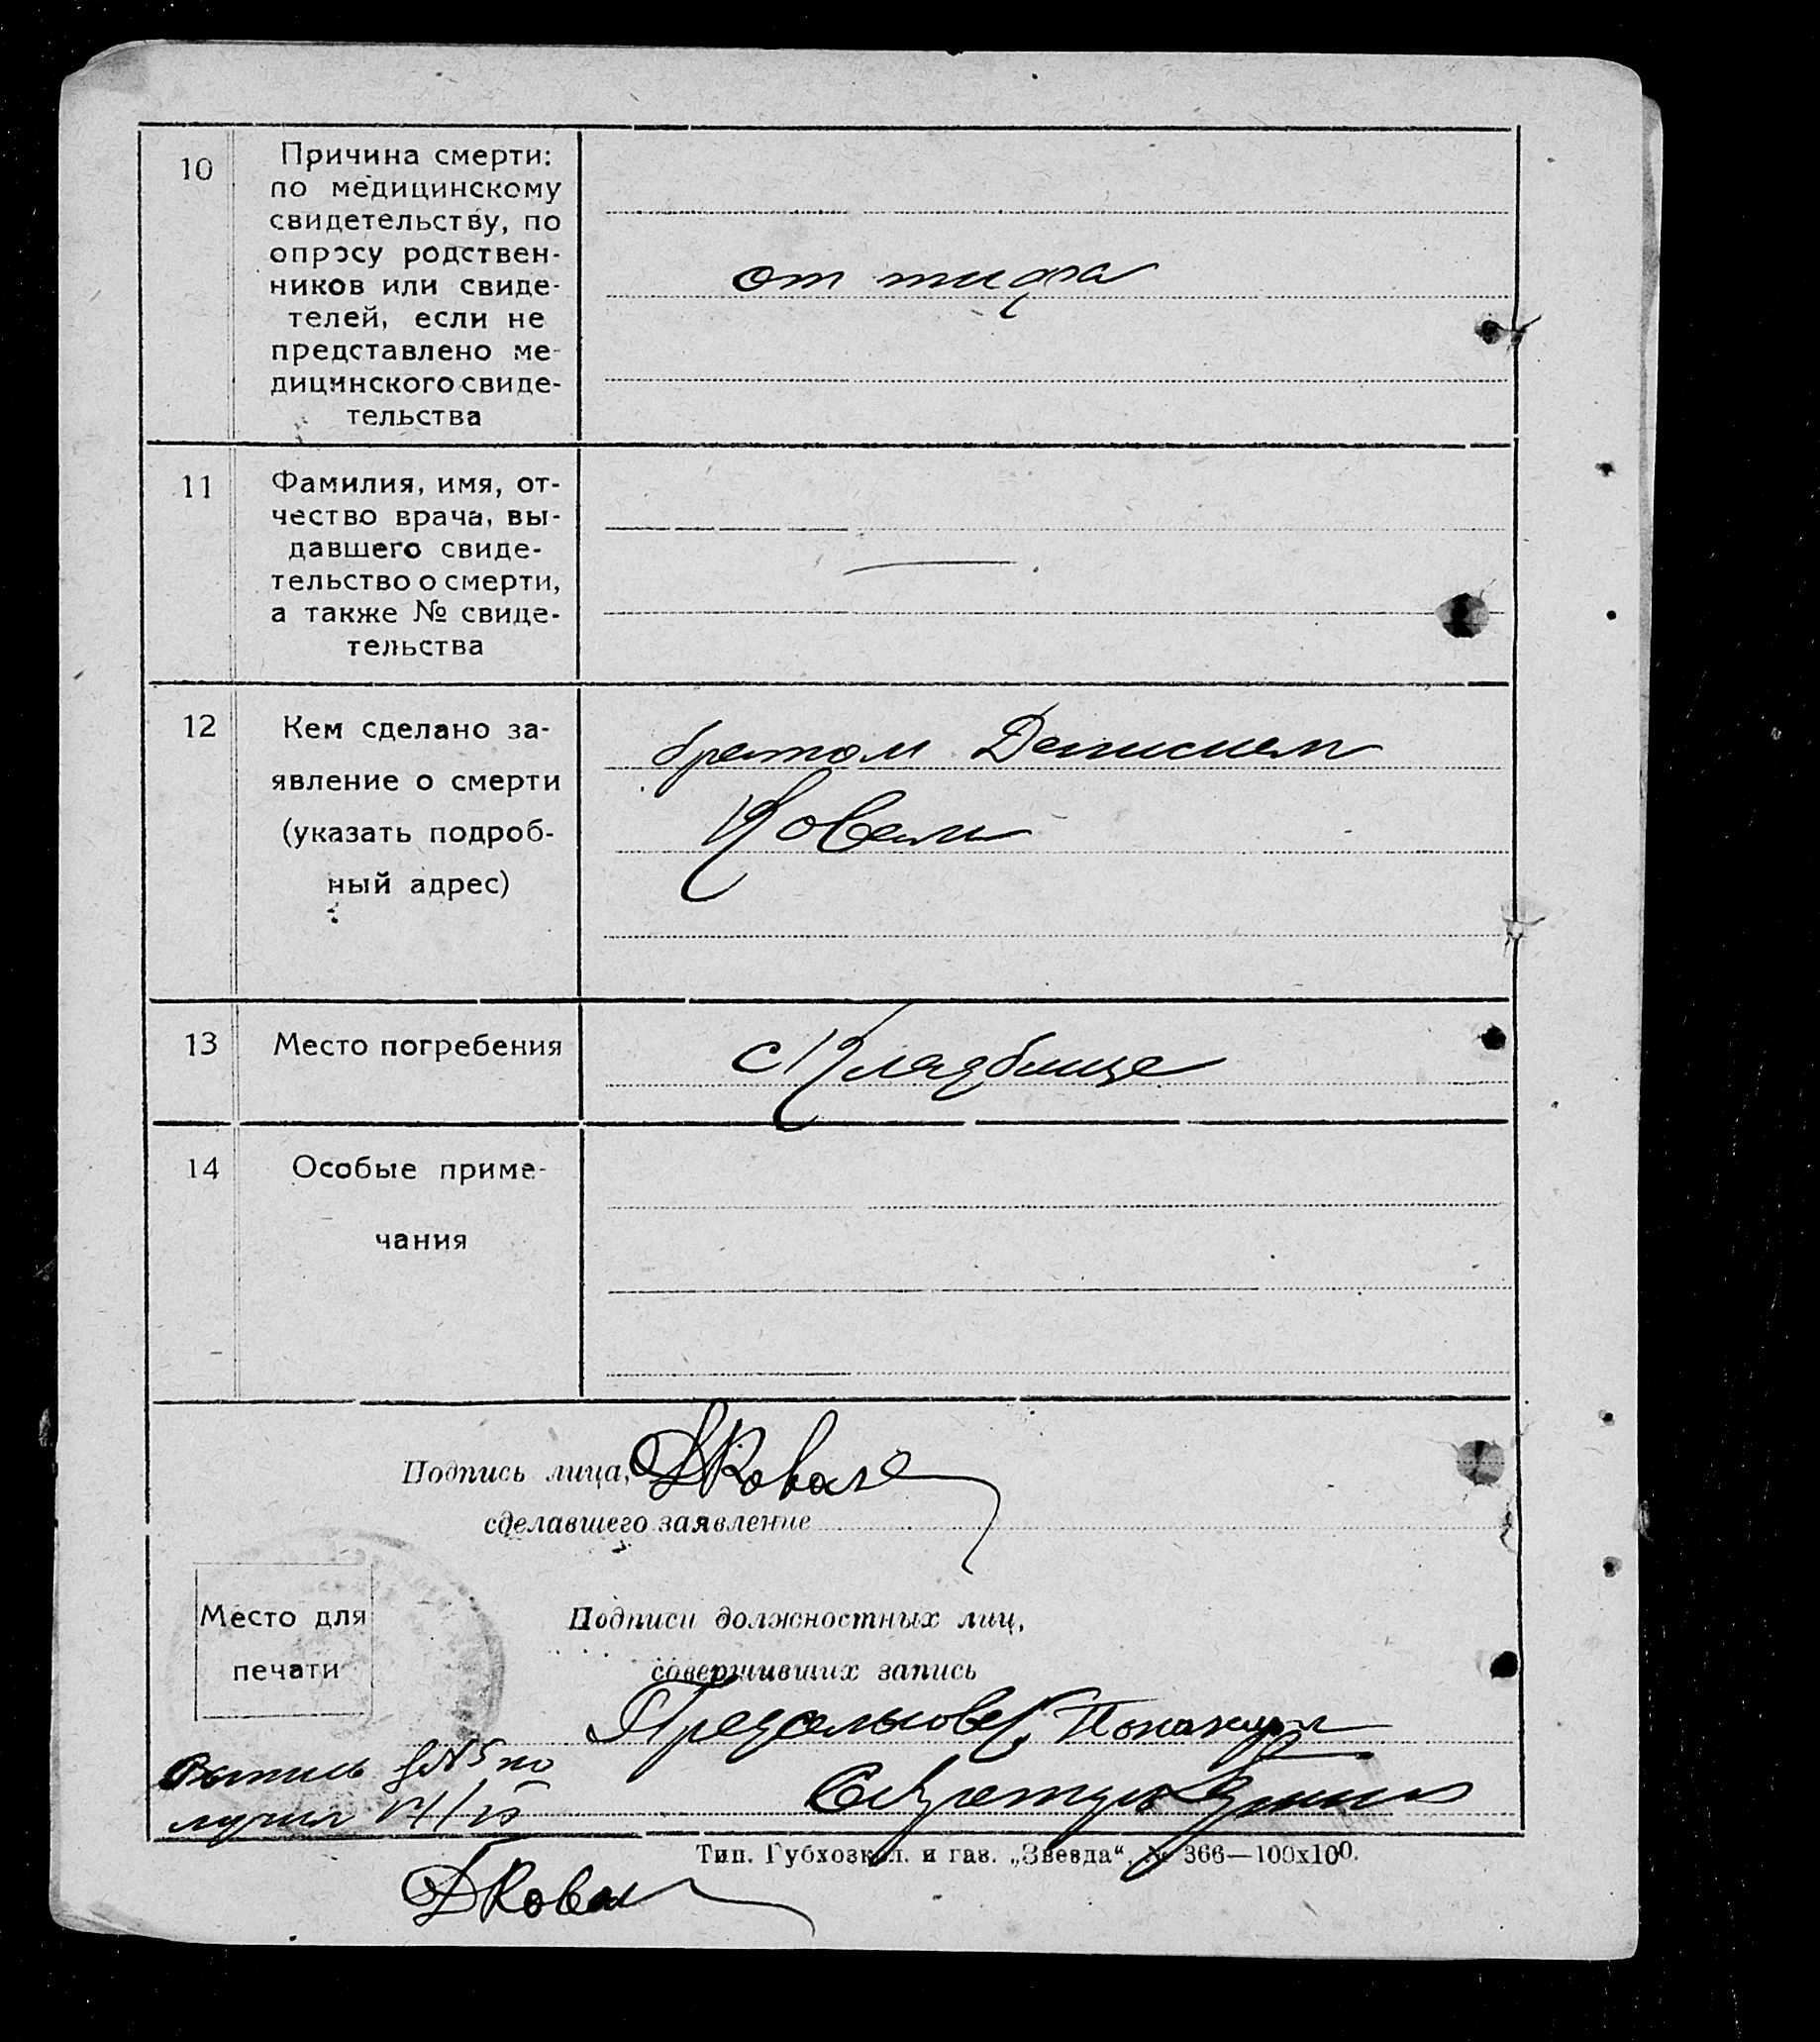 10
Причина смерти:
по медицинскому
свидетельству, по
опросу родствен-
ников или свиде-
телей, если не
представлено ме-
дицинского свиде-
тельства
от тифа
11
Фамилия, имя, от-
чество врача, вы-
давшего свиде-
тельство о смерти,
а также № свиде-
тельства
—
12
Кем сделано за-
явление о смерти
(указать подроб-
ный адрес)
братом Денисием
Ковали
13
Место погребения
с Клядбище
14
Особые приме-
чания
Подпись лица, ДКоваль
сделавшего заявление
Место для
печати
Подписи должностных лиц,
совершивших запись
Предсельсовет
Выпись №5 по
лучил
Секретарь
Тип. Губхозкол. и газ. „Звезда“, № 366—100х100.
ДКовал